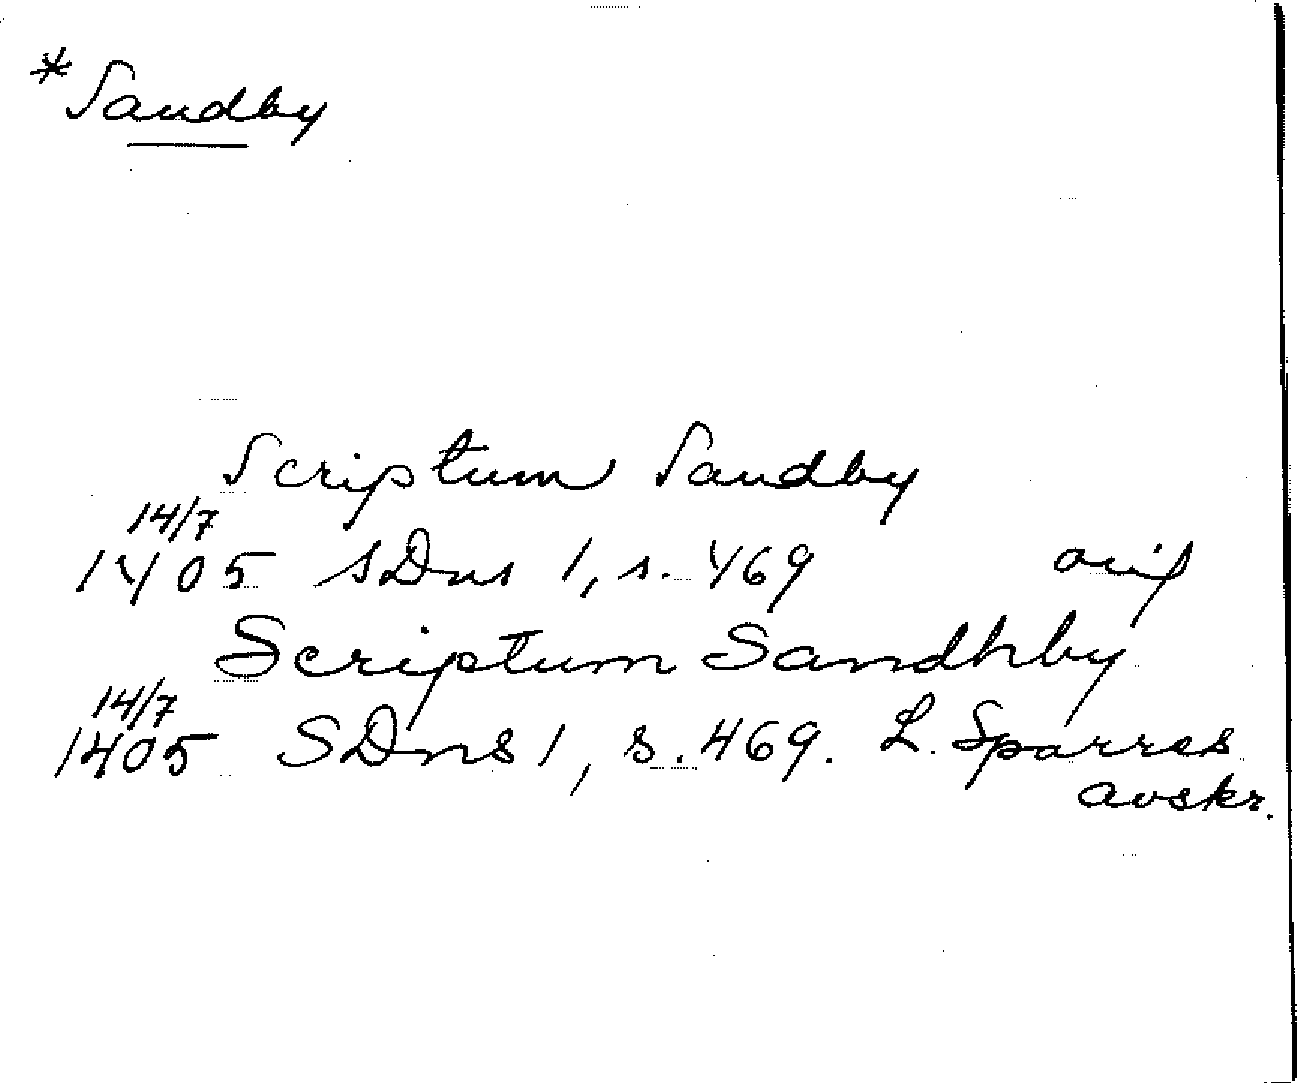 *Sandby
Scriptum Sandby
14/7
1405 SDns 1, s. 469 orig
Scriptum Sandhby
14/7
1405 SDns 1, s. 469. L. Sparres
avskr.